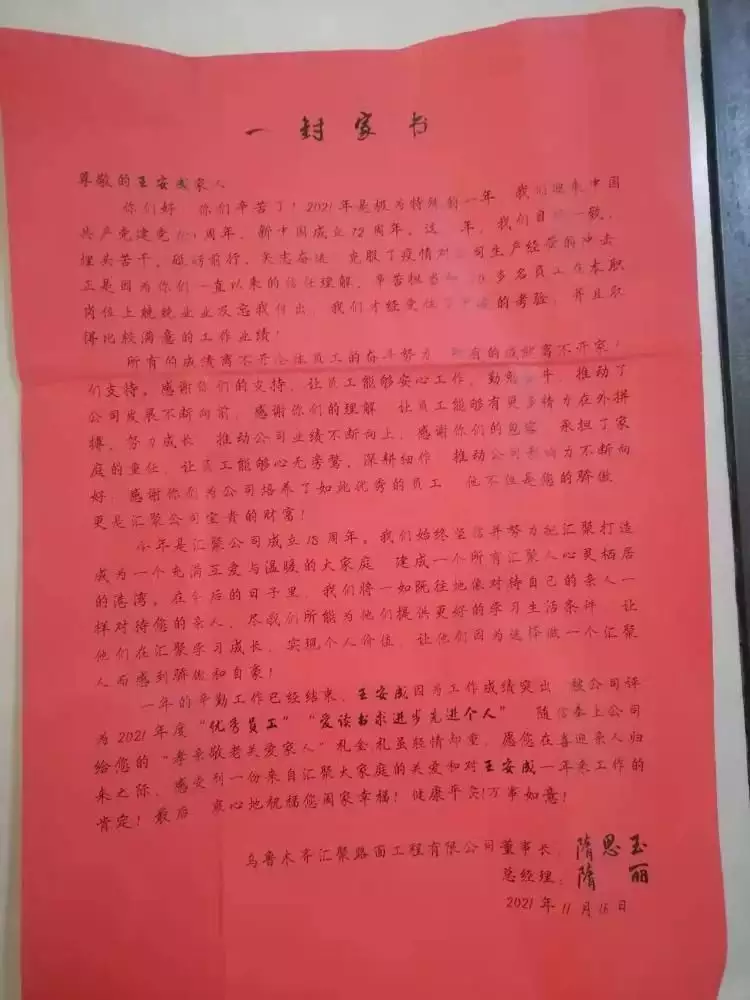 一封家书
尊敬的王安成家人
你们好 你们辛苦了！2021年是极为特殊的一年 我们迎来中国
共产党建党 周年，新中国成立72周年。这 年，我们目 一致，
埋头苦干，砥砺前行，矢志奋进 克服了疫情对公司生产经营的冲击
正是因为你们一直以来的信任理解，辛苦担当 多名员工在本职
岗位上兢兢业业及忘我付出，我们才经受住了 的考验，并且取
得比较满意的工作业绩！
所有的成绩离不开全体员工的奋斗努力 所有的成就离不开家人
们支持。感谢你们的支持，让员工能够安心工作，勤 ，推动了
公司发展不断向前，感谢你们的理解 让员工能够有更多精力在外拼
搏，努力成长 推动公司业绩不断向上，感谢你们的包容 承担了家
庭的重任，让员工能够心无旁骛，深耕细作 推动公司影响力不断向
好，感谢你们为公司培养了如此优秀的员工 他不但是您的骄傲
更是汇聚公司宝贵的财富！
今年是汇聚公司成立18周年。我们始终坚信并努力把汇聚打造
成为一个充满互爱与温暖的大家庭 建成一个所有汇聚人心灵栖居
的港湾。在今后的日子里，我们将一如既往地像对待自己的亲人一
样对待您的亲人，尽我们所能为他们提供更好的学习生活条件 让
他们在汇聚学习成长，实现个人价值，让他们因为选择做一个汇聚
人而感到骄傲和自豪！
一年的辛勤工作已经结束，王安成因为工作成绩突出 被公司评
为2021年度“优秀员工”“爱读书求进步先进个人” 随信奉上公司
给您的“孝亲敬老关爱家人”礼金 礼虽轻情却重，愿您在喜迎亲人归
来之际，感受到一份来自汇聚大家庭的关爱和对王安成一年来工作的
肯定！最后 衷心地祝福您阖家幸福！健康平安！万事如意！
乌鲁木齐汇聚路面工程有限公司董事长：隋思玉
总经理：隋 丽
2021年11月16日